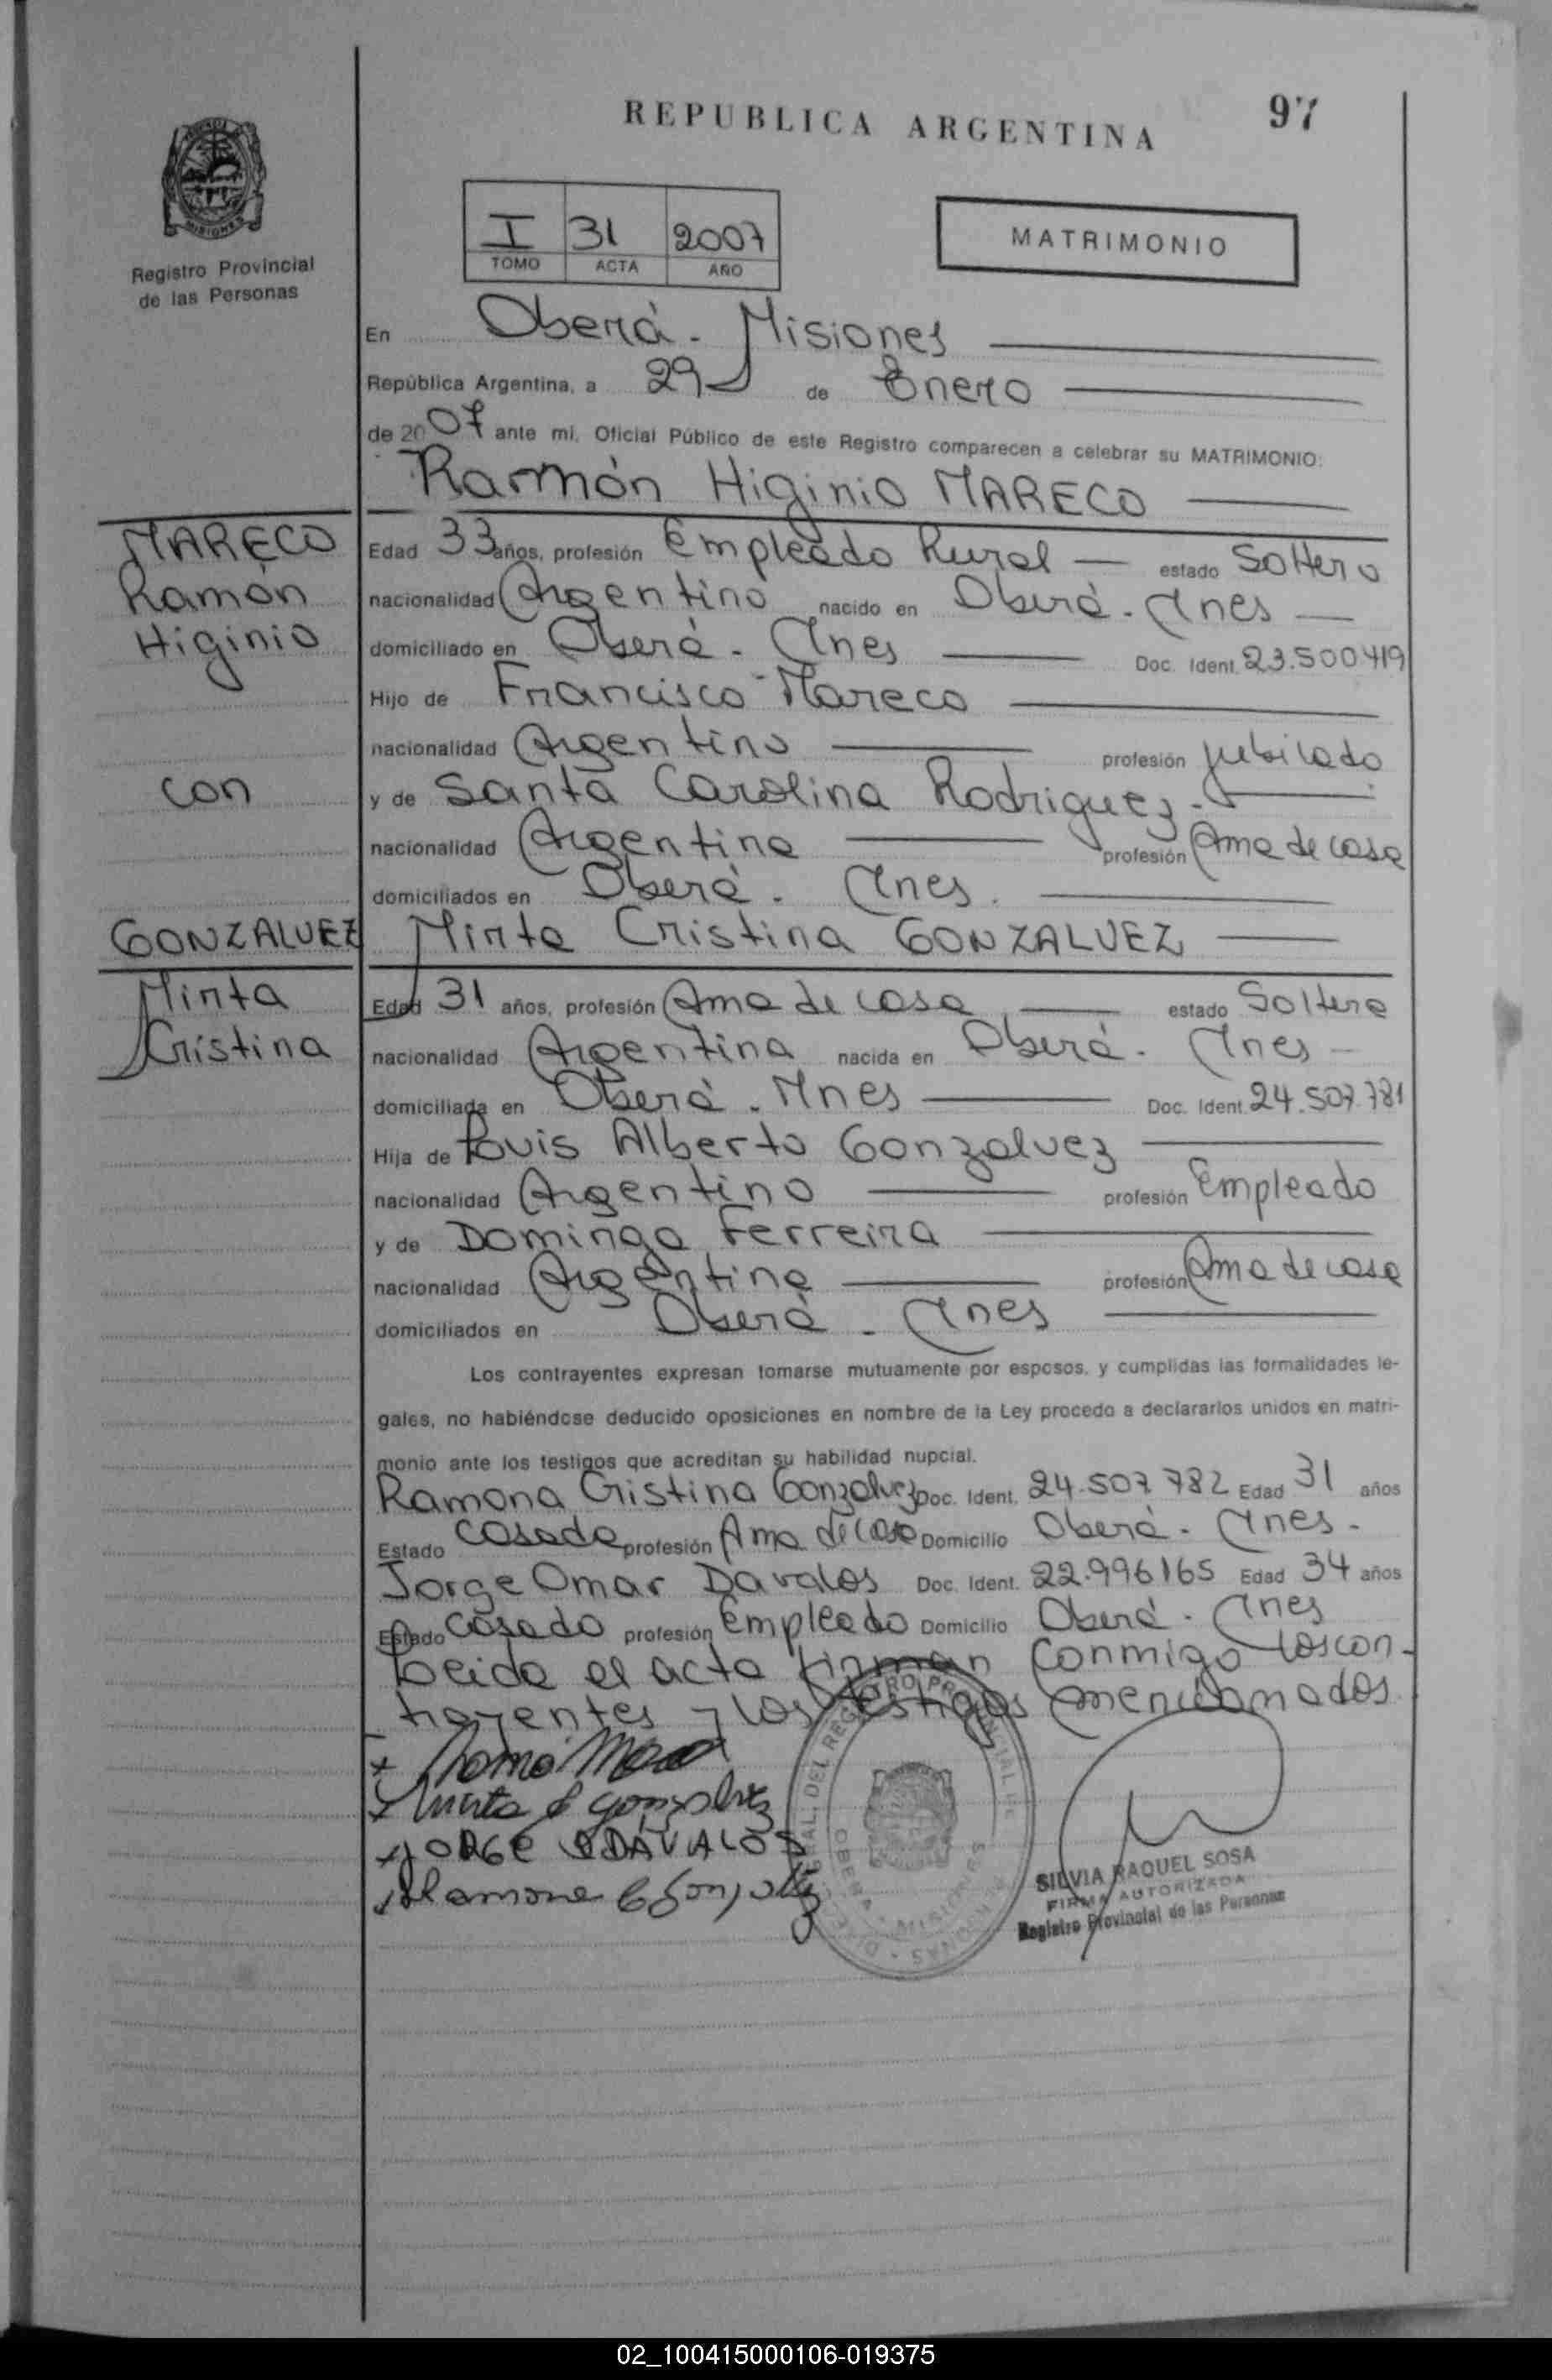 REPUBLICA ARGENTINA
97
MISIONES
Registro Provincial
de las Personas
I 31 2007
TOMO ACTA AÑO
MATRIMONIO
En Oberá - Misiones
República Argentina, a 29 de Enero
de 2007 ante mí, Oficial Público de este Registro comparecen a celebrar su MATRIMONIO:
Ramón Higinio MARECO
MARECO
Ramón
Higinio
Edad 33 años, profesión Empleado Rural estado Soltero
nacionalidad Argentino nacido en Oberá - Mnes
domiciliado en Oberá - Mnes Doc. Ident. 23.500419
Hijo de Francisco Mareco
nacionalidad Argentino profesión Jubilado
con
y de Santa Carolina Rodriguez.
nacionalidad Argentina profesión Ama de casa
domiciliados en Oberá. Mnes.
GONZALVEZ
Mirta
Cristina
Mirta Cristina GONZALVEZ
Edad 31 años, profesión Ama de casa estado Soltera
nacionalidad Argentina nacida en Oberá. Mnes
domiciliada en Oberá. Mnes Doc. Ident. 24.507.781
Hija de Luis Alberto Gonzalvez
nacionalidad Argentino profesión Empleado
y de Dominga Ferreira
nacionalidad Argentina profesión Ama de casa
domiciliados en Oberá - Mnes
Los contrayentes expresan tomarse mutuamente por esposos, y cumplidas las formalidades le-
gales, no habiéndose deducido oposiciones en nombre de la Ley procedo a declararlos unidos en matri-
monio ante los testigos que acreditan su habilidad nupcial.
Ramona Cristina Gonzalvez Doc. Ident. 24.507 782 Edad 31 años
Estado Casada profesión Ama de casa Domicilio Oberá - Mnes.
Jorge Omar Davalos Doc. Ident. 22.996165 Edad 34 años
Estado Casado profesión Empleado Domicilio Oberá - Mnes
Leida el acta firman conmigo los con-
trayentes y los testigos mencionados.
Mirta C Gonzalvez
JORGE O DÁVALOS
Ramona C Gonzalvez
OBERA - MISIONES
SILVIA RAQUEL SOSA
FIRMA AUTORIZADA
Registro Provincial de las Personas
02_100415000106-019375